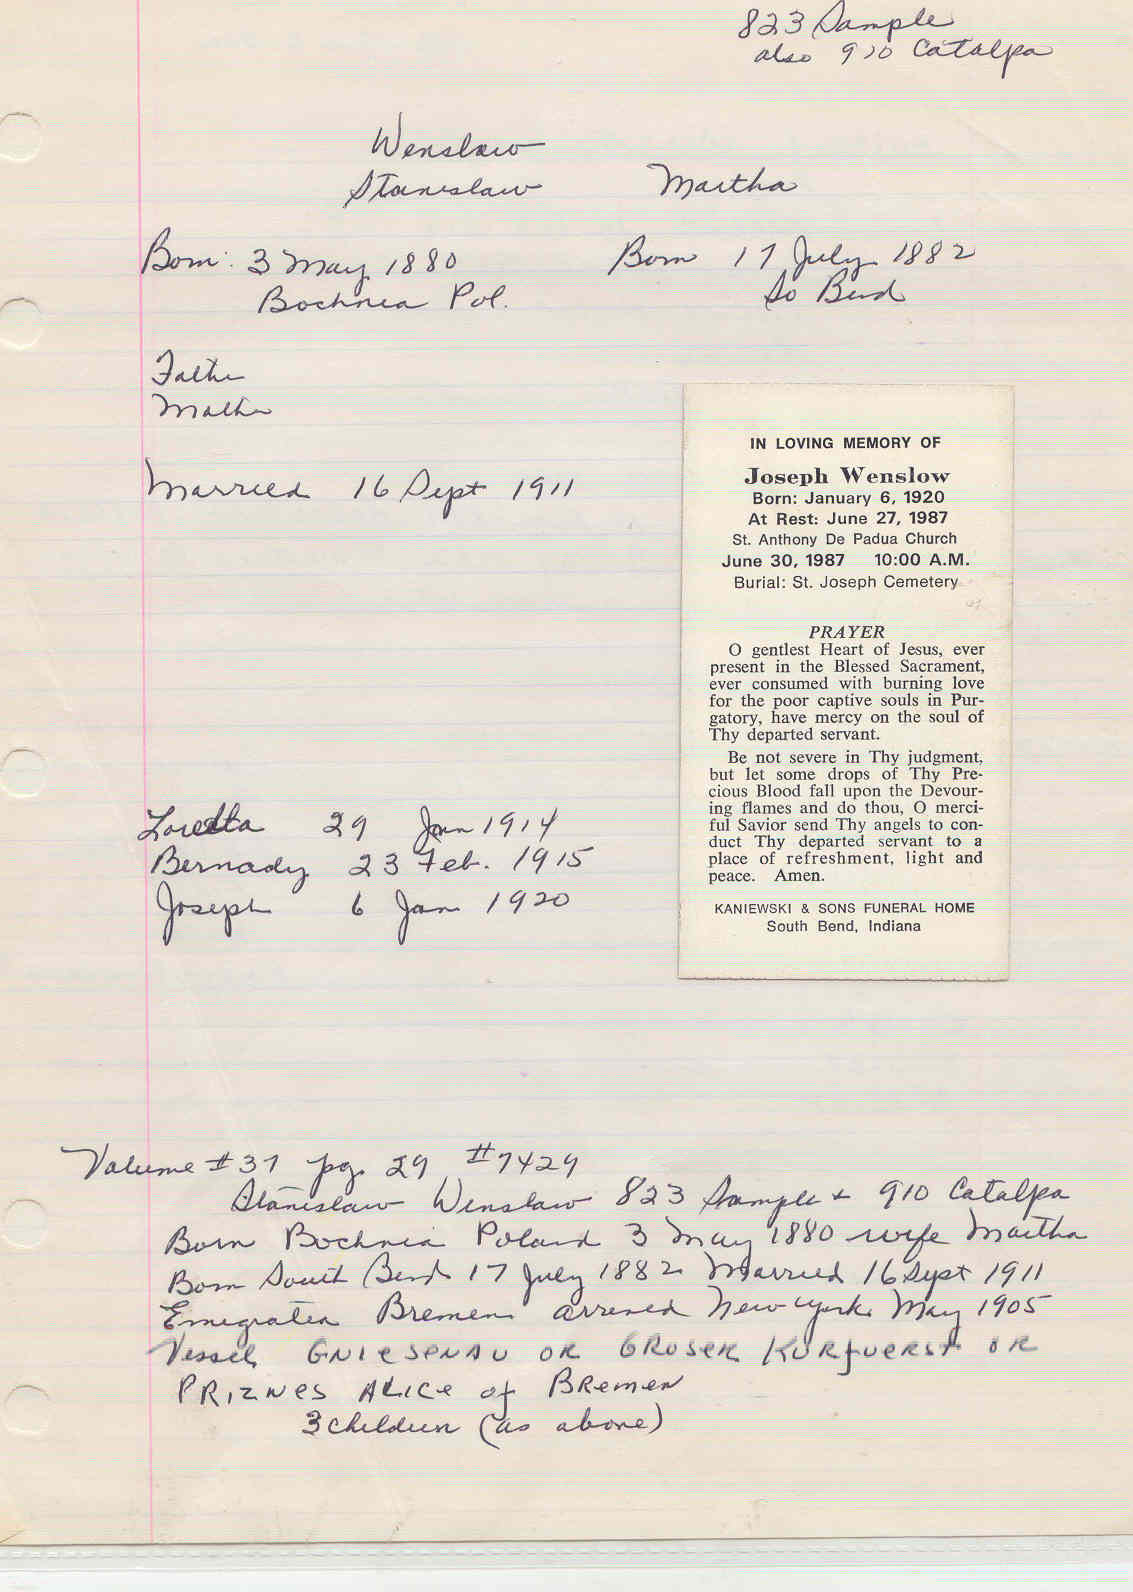 823 Sample
also 910 Catalpa
Wenslaw
Stanislaw Martha
Born: 3 May 1880 Born 17 July 1882
Bochnia Pol. So Bend
Father
Mother
Married 16 Sept 1911
IN LOVING MEMORY OF
Joseph Wenslow
Born: January 6, 1920
At Rest: June 27, 1987
St. Anthony De Padua Church
June 30, 1987 10:00 A.M.
Burial: St. Joseph Cemetery
PRAYER
O gentlest Heart of Jesus, ever
present in the Blessed Sacrament,
ever consumed with burning love
for the poor captive souls in Pur-
gatory, have mercy on the soul of
Thy departed servant.
Be not severe in Thy judgment,
but let some drops of Thy Pre-
cious Blood fall upon the Devour-
ing flames and do thou, O merci-
ful Savior send Thy angels to con-
duct Thy departed servant to a
place of refreshment, light and
peace. Amen.
KANIEWSKI & SONS FUNERAL HOME
South Bend, Indiana
Loretta 29 Jan 1914
Bernady 23 Feb. 1915
Joseph 6 Jan 1920
Volume #37 pg. 29 #7429
Stanislaw Wenslaw 823 Sample + 910 Catalpa
Born Bochnia Poland 3 May 1880 wife Martha
Born South Bend 17 July 1882 Married 16 Sept 1911
Emigrated Bremen arrived New York May 1905
Vessel GNIESENAU OR GROSER KURFUERST OR
PRIZNES ALICE of BREMEN
3 children (as above)